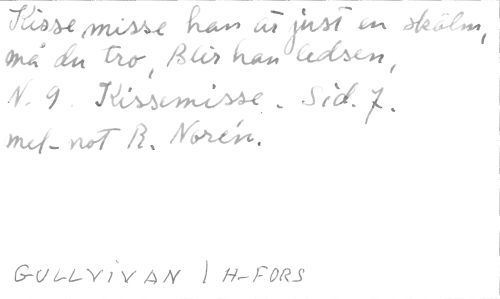 Kisse misse han är just en skälm,
må du tro, Blir han ledsen,
N. 9. Kissemisse. Sid. 7.
mel-not R. Norén.
GULLVIVAN / H-FORS